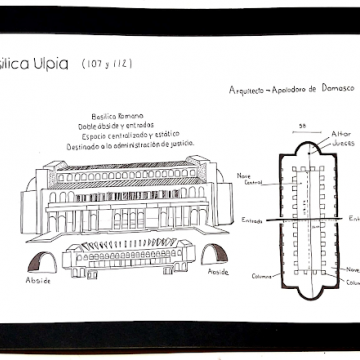 silica Ulpia (107 y 112)
Arquitecto - Apolodoro de Damasco
Basílica Romana
Doble ábside y entradas
Espacio centralizado y estático
Destinado a la administración de justicia.
Altar
Jueces
Nave
Central
Entrada
Ent
Columna
Nave
Colum
Abside
Abside